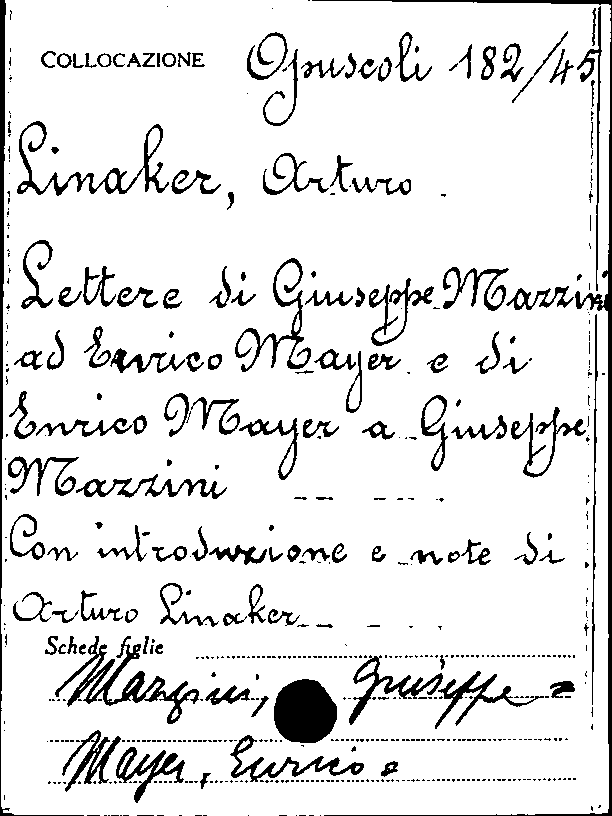 COLLOCAZIONE Opuscoli 182/45
Linaker, Arturo.
Lettere di Giuseppe Mazzini
ad Enrico Mayer e di
Enrico Mayer a Giuseppe
Mazzini
Con introduzione e note di
Arturo Linaker
Schede figlie
Mazzini, Giuseppe =
Mayer, Enrico =